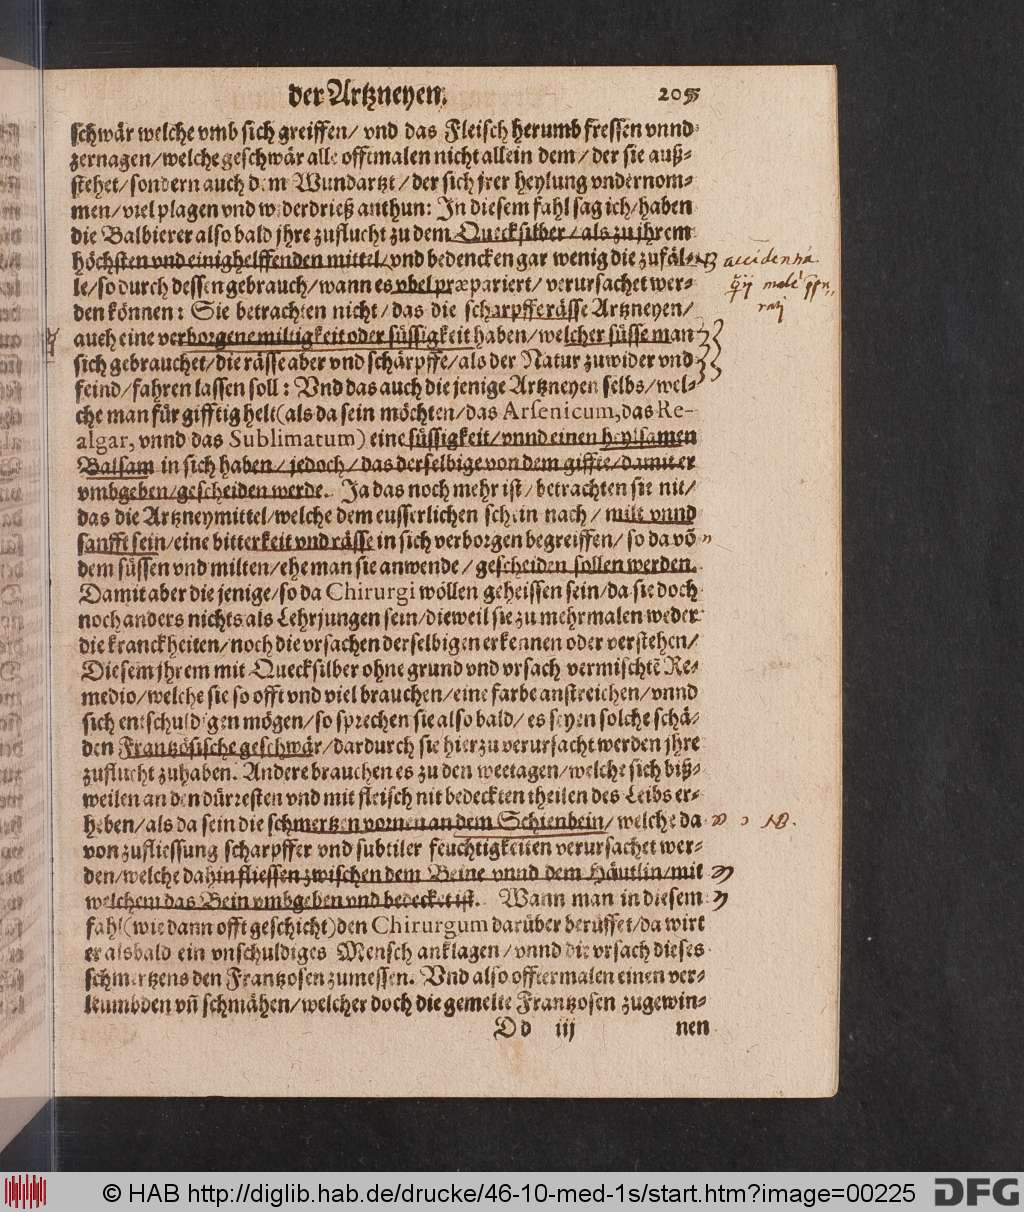 der Artzneyen.
schwär welche vmb sich greiffen/ vnd das Fleisch herumb fressen vnnd
zernagen/welche geschwär alle offtmalen nicht allein dem/ der sie auß-
stehet/sondern auch dem Wundartzt/der sich jrer heylung vndernom-
men/viel plagen vnd widerdrieß anthun: In diesem fahl sag ich/haben
die Balbierer also bald jhre zuflucht zu dem Quecksilber/als zu jhrem
höchsten vnd einig helffenden mittel/vnd bedencken gar wenig die zufäl-
le/so durch dessen gebrauch/wann es vbel præpariert/ verursachet wer-
den können: Sie betrachten nicht/das die scharpffe rässe Artzneyen/
auch eine verborgene miltigkeit oder süssigkeit haben/welcher süsse man
sich gebrauchet/die rässe aber vnd schärpffe/als der Natur zuwider vnd
feind/fahren lassen soll: Vnd das auch die jenige Artzneyen selbs/wel-
che man für gifftig helt(als da sein möchten/das Arsenicum, das Re-
algar, vnnd das Sublimatum) eine süssigkeit/vnnd einen heylsamen
Balsam in sich haben/jedoch/das derselbige von dem giffte/damit er
vmbgeben/gescheiden werde. Ja das noch mehr ist/betrachten sie nit/
das die Artzneymittel/welche dem eusserlichen schein nach/ milt vnnd
sanfft sein/eine bitterkeit vnd rässe in sich verborgen begreiffen/ so da võ
dem süssen vnd milten/ehe man sie anwende/gescheiden sollen werden.
Damit aber die jenige/so da Chirurgi wöllen geheissen sein/da sie doch
noch anders nichts als Lehrjungen sein/dieweil sie zu mehrmalen weder
die kranckheiten/noch die vrsachen derselbigen erkennen oder verstehen/
Diesem jhrem mit Quecksilber ohne grund vnd vrsach vermischtẽ Re-
medio/welche sie so offt vnd viel brauchen/eine farbe anstreichen/vnnd
sich entschuldigen mögen/so sprechen sie also bald/es seyen solche schä-
den Frantzösische geschwär/dardurch sie hierzu verursacht werden jhre
zuflucht zuhaben. Andere brauchen es zu den weetagen/welche sich biß-
weilen an den dürresten vnd mit fleisch nit bedeckten theilen des Leibs er-
heben/als da sein die schmertzen vornen an dem Schienbein/welche da
von zufliessung scharpffer vnd subtiler feuchtigkeiten verursachet wer-
den/welche dahin fliessen zwischen dem Beine vnnd dem Häutlin/mit
welchem das Bein vmbgeben vnd bedecket ist. Wann man in diesem
fahl(wie dann offt geschicht)den Chirurgum darüber beruffet/da wirt
er alsbald ein vnschuldiges Mensch anklagen/vnnd die vrsach dieses
schmertzens den Frantzosen zumessen. Vnd also offtermalen einen ver-
leumbden vñ schmähen/welcher doch die gemelte Frantzosen zugewin-
Dd iij nen
NB.
© HAB http://diglib.hab.de/drucke/46-10-med-1s/start.htm?image=00225
DFG